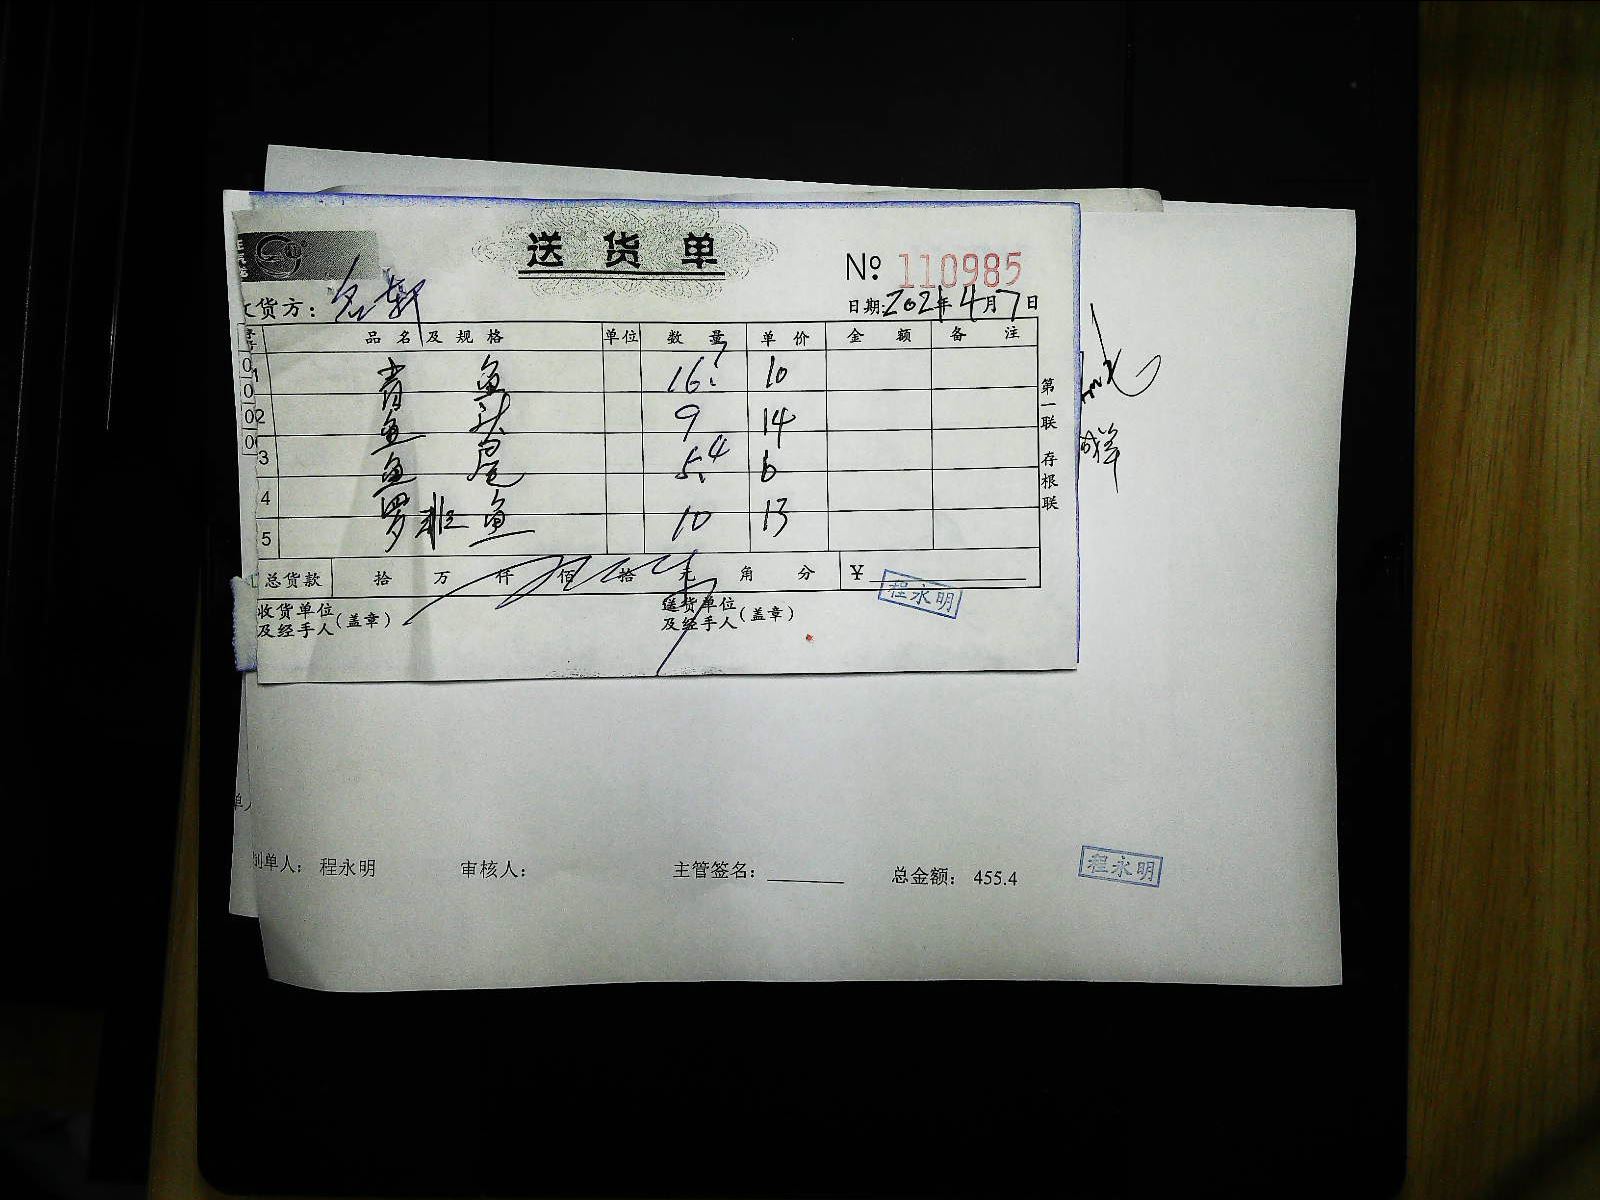 送货单
№ 110985
收货方：名轩
日期:2021年4月7日
品名及规格 单位 数量 单价 金额 备注
1 青鱼 16.7 10
2 鱼头 9 14
3 鱼尾 5.4 6
4 罗非鱼 10 13
5
总货款 拾 万 仟 佰 拾 元 角 分 ¥
收货单位及经手人(盖章)
送货单位及经手人(盖章)
程永明
第一联 存根联
制单人：程永明 审核人： 主管签名： 总金额： 455.4
程永明